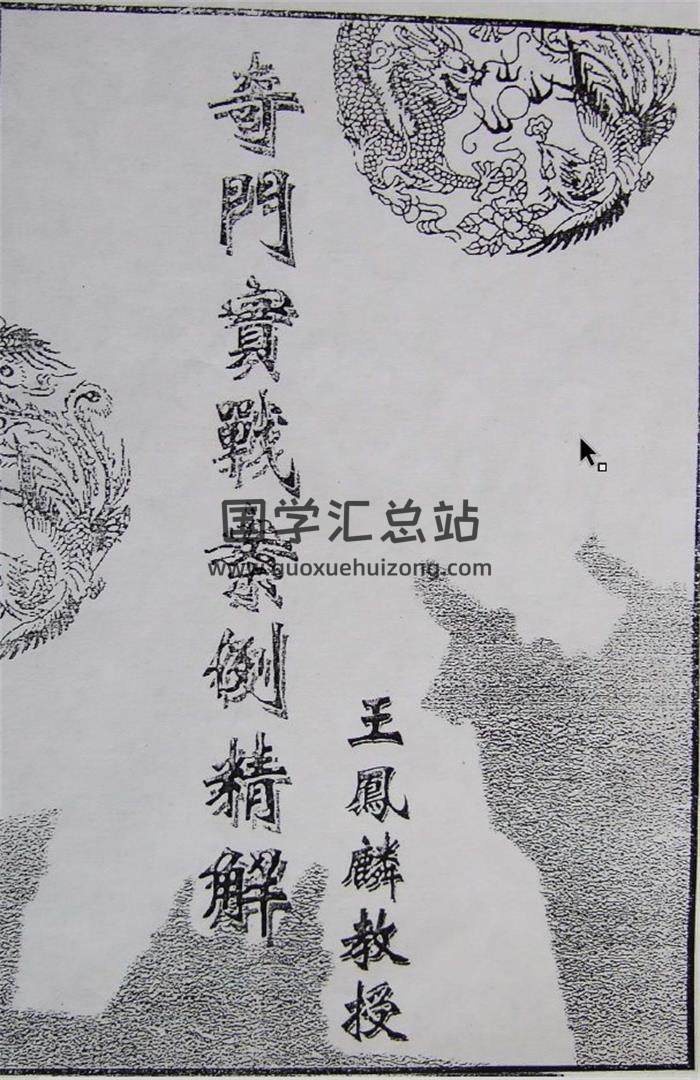 奇門實戰案例精解
王鳳麟教授
国学汇总站
www.guoxuehuizong.com